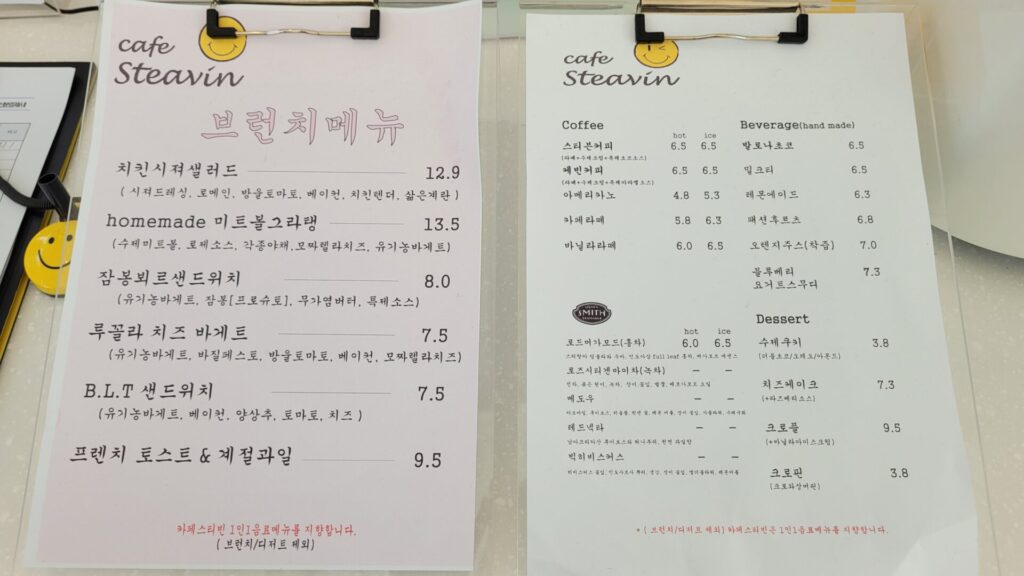 cafe
Steavin
브런치메뉴
치킨시져샐러드 12.9
( 시져드레싱, 로메인, 방울토마토, 베이컨, 치킨텐더, 삶은계란 )
homemade 미트볼그라탱 13.5
(수제미트볼, 로제소스, 각종야채,모짜렐라치즈, 유기농바게트)
잠봉뵈르샌드위치 8.0
(유기농바게트, 잠봉[프로슈토], 무가염버터, 특제소스)
루꼴라 치즈 바게트 7.5
(유기농바게트, 바질페스토, 방울토마토, 베이컨, 모짜렐라치즈)
B.L.T 샌드위치 7.5
(유기농바게트, 베이컨, 양상추, 토마토, 치즈 )
프렌치 토스트 & 계절과일 9.5
카페스티빈 1인1음료메뉴를 지향합니다.
( 브런치/디저트 제외)
cafe
Steavin
Coffee
hot ice
스티븐커피 6.5 6.5
케빈커피 6.5 6.5
아메리카노 4.8 5.3
카페라떼 5.8 6.3
바닐라라떼 6.0 6.5
Beverage(hand made)
발로나초코 6.5
밀크티 6.5
레몬에이드 6.3
패션후르츠 6.8
오렌지주스(착즙) 7.0
블루베리
요거트스무디 7.3
SMITH
hot ice
로드버가모드(홍차) 6.0 6.5
full leaf
로즈시티겐마이차(녹차) – –
메도우 – –
레드넥타 – –
빅히비스커스 – –
Dessert
수제쿠키 3.8
(더블초코/오레오/아몬드)
치즈케이크 7.3
(+라즈베리소스)
크로플 9.5
(+바닐라아이스크림)
크로핀 3.8
(크로와상머핀)
* ( 브런치/디저트 제외) 카페스티빈은 1인1음료메뉴를 지향합니다.